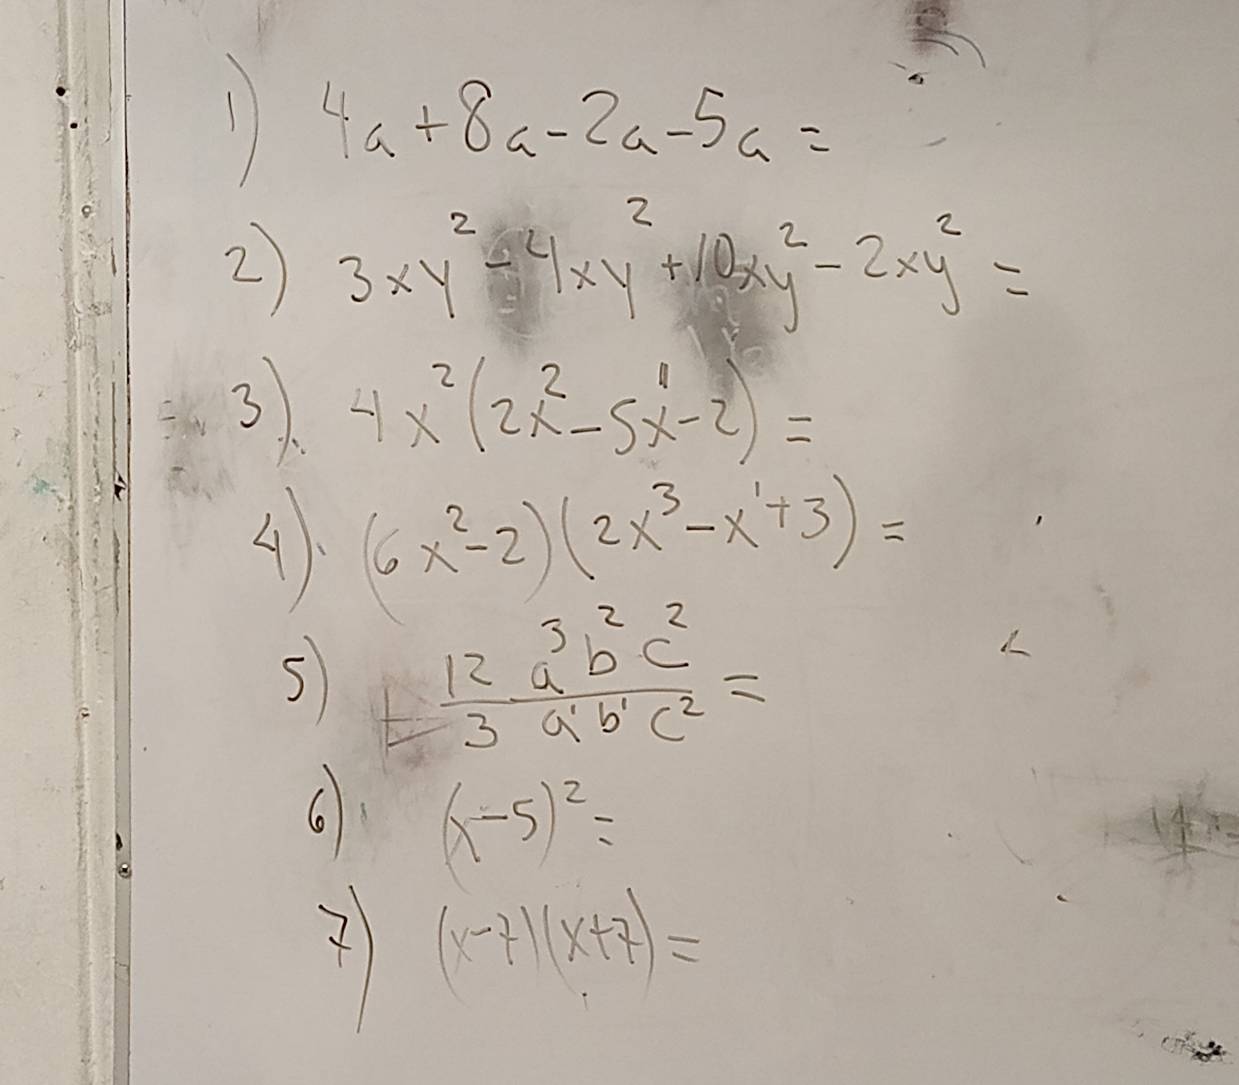 1) 4a+8a-2a-5a=
2) 3xy²-4xy²+10xy²-2xy²=
3). 4x²(2x²-5x¹-2)=
4). (6x²-2)(2x³-x¹+3)=
5) 12 a³b²c² / 3 a¹b¹c² =
6) (x-5)²=
7) (x-7)(x+7)=